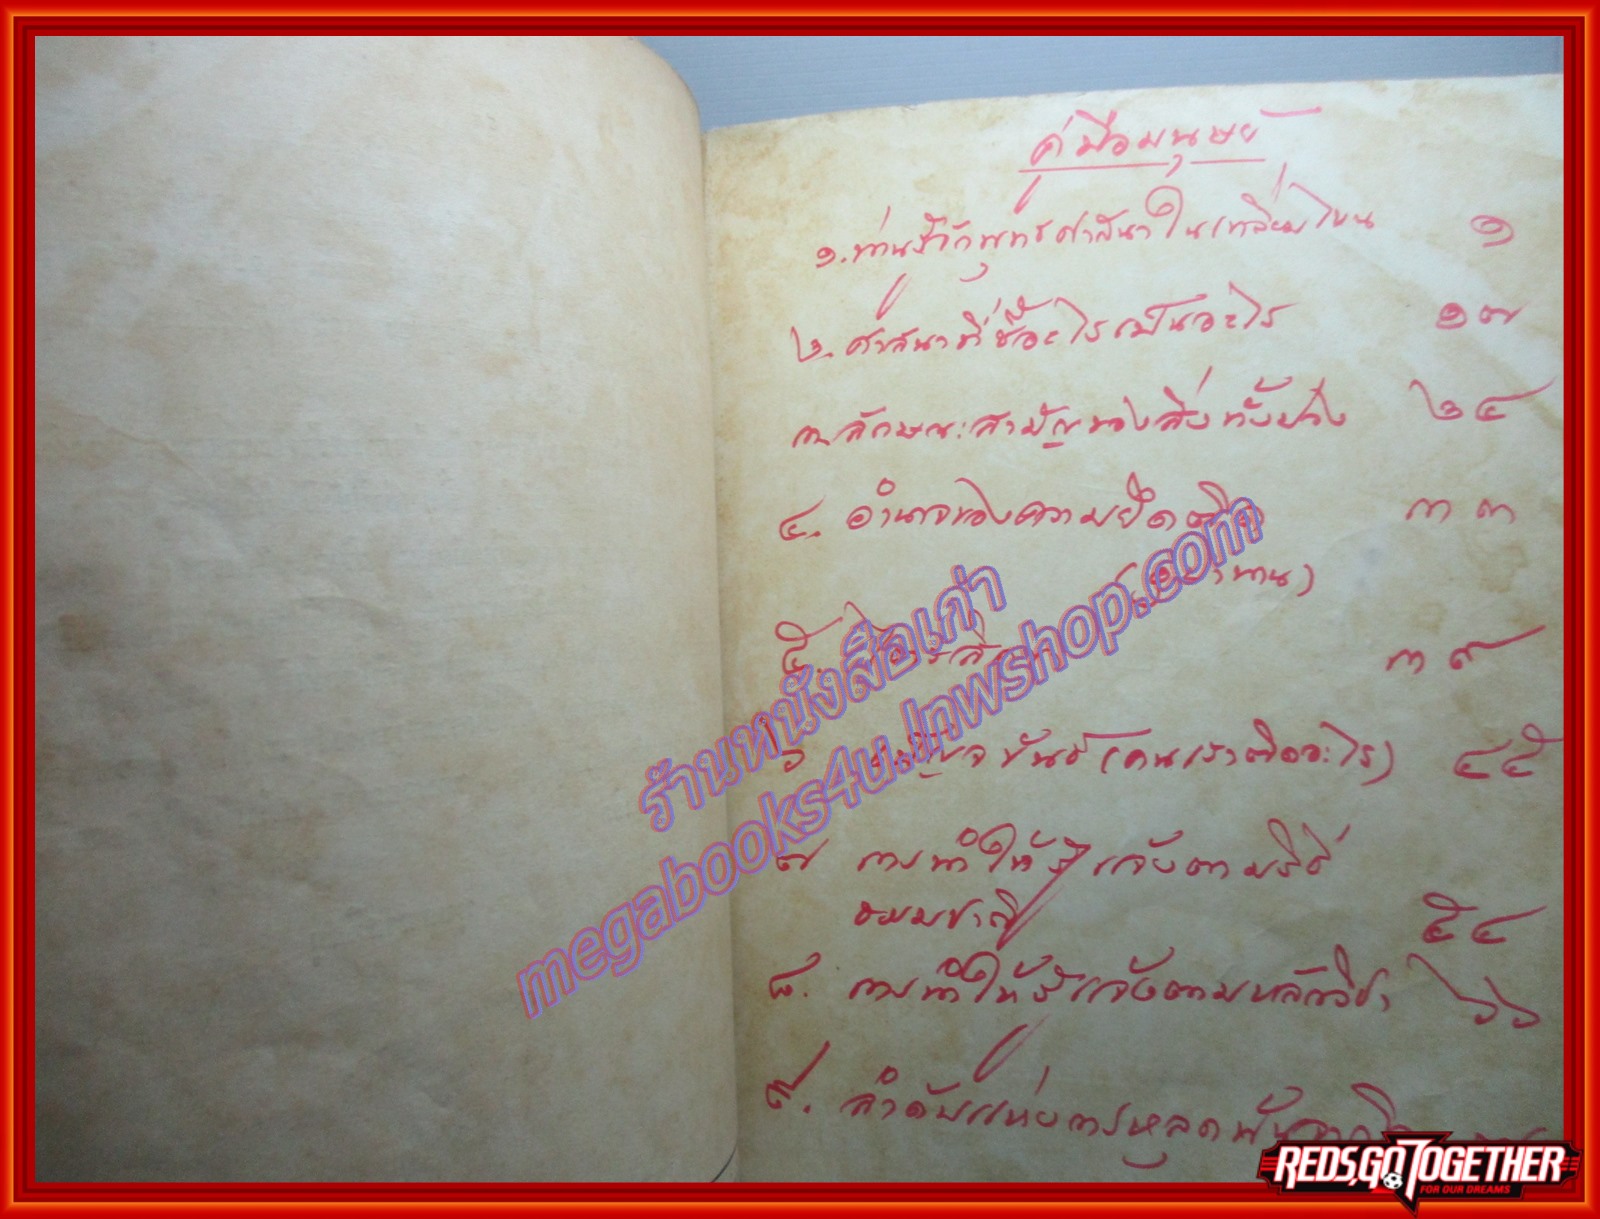 คู่มือมนุษย์
๑. ท่านรู้จักพุทธศาสนาในเหลี่ยมไหน ๑
๒. ศาสนาที่ชี้อะไรเป็นอะไร ๑๗
๓. ลักษณะสามัญของสิ่งทั้งปวง ๒๔
๔. อำนาจของความยึดติด ๓๓
(อุปาทาน)
๕. ไตรสิกขา ๓๙
๖ เบ็ญจขันธ์ (คนเราติดอะไร) ๔๕
๗ การทำให้รู้แจ้งตามวิธี
ธรรมชาติ ๕๔
๘. การทำให้รู้แจ้งตามหลักวิชา ๖๖
๙. ลำดับแห่งการหลุดพ้น
ร้านหนังสือเก่า
megabooks4u.lnwshop.com
REDS,GO TOGETHER
FOR OUR DREAMS